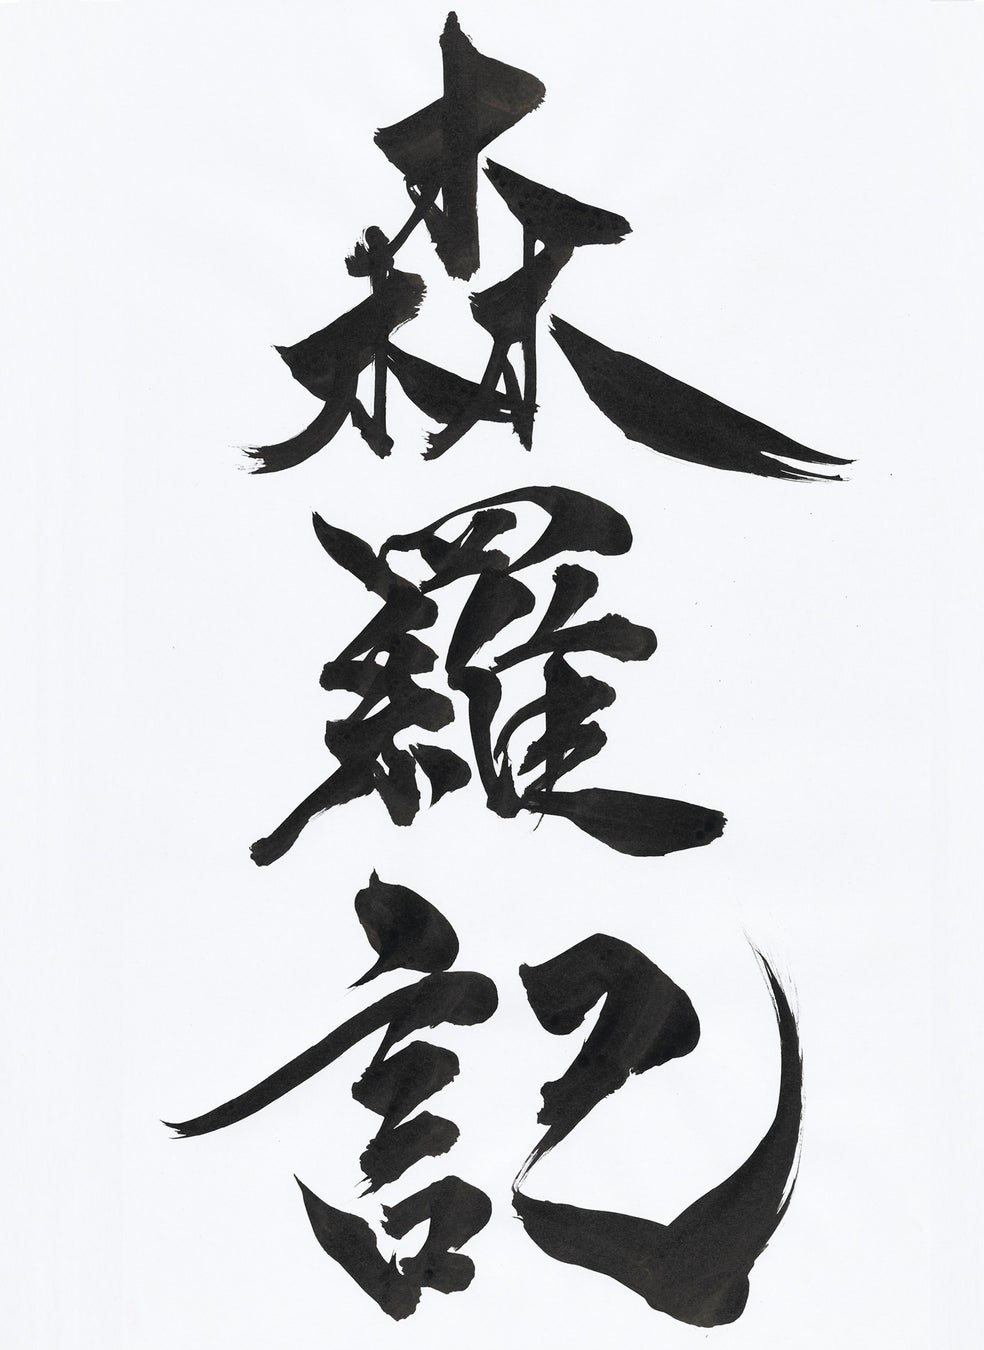 森羅記